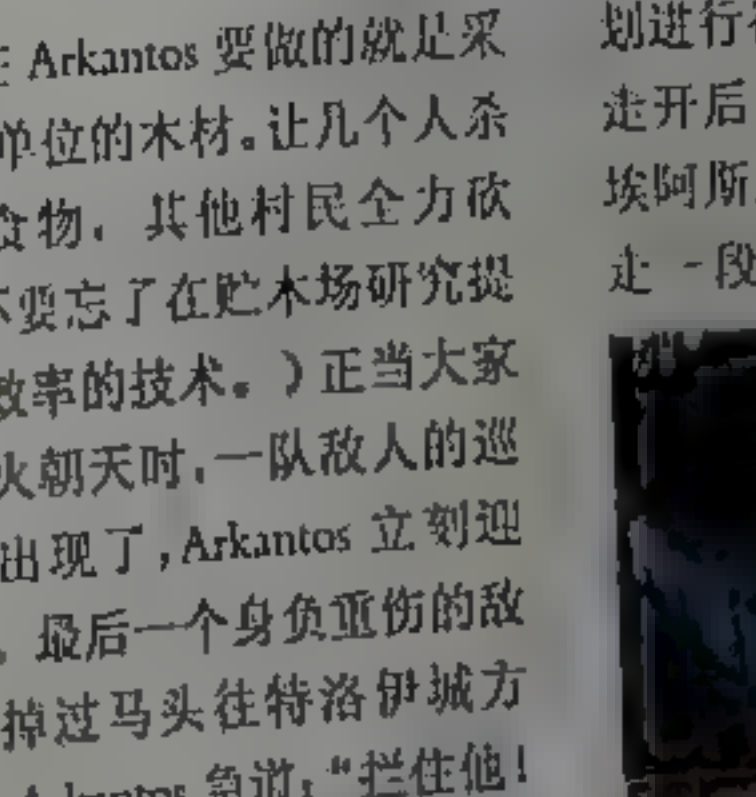 Arkantos 要做的就是采
单位的木材。让几个人杀
食物，其他村民全力砍
不要忘了在贮木场研究提
效率的技术。）正当大家
火朝天时，一队敌人的巡
出现了，Arkantos 立刻迎
。最后一个身负重伤的敌
掉过马头往特洛伊城方
急道：“拦住他！
划进行
走开后
埃阿斯
走一段